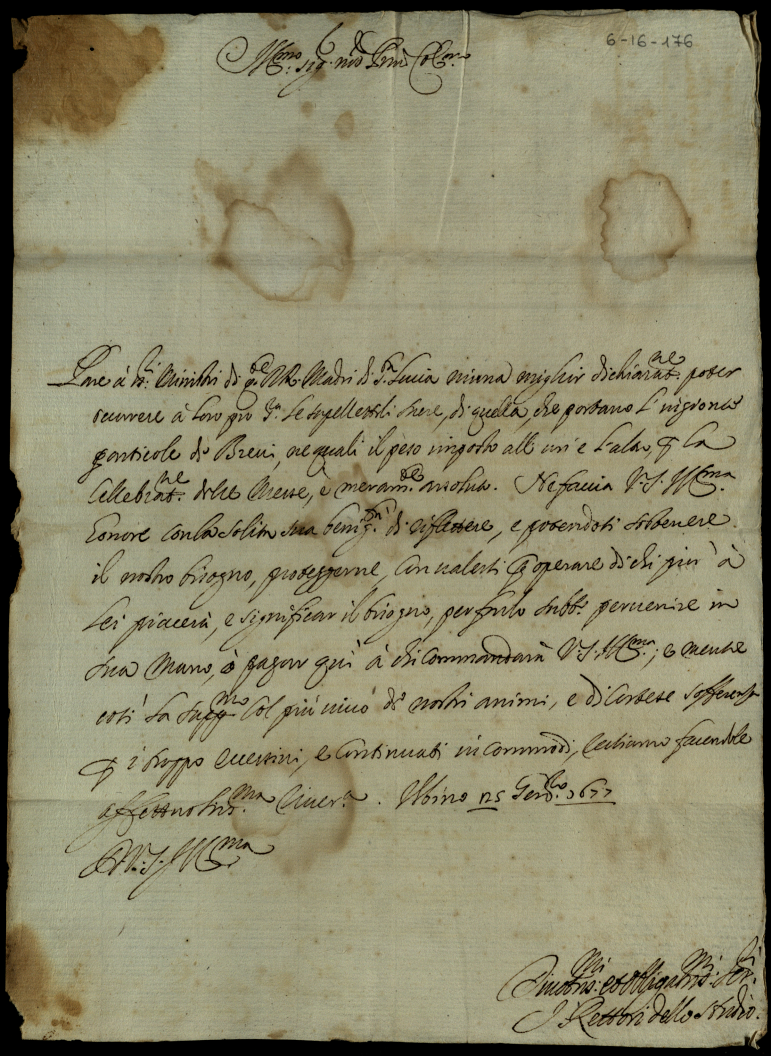 6-16-176
Ill.mo Sig. mio Pron Col.mo
Pare à Ministri di RR. Madri di S.ta Lucia niuna miglior dichiarat.ne poter
occorrere à loro pro le supellettili Sacre, di quella, che portano
particole de Brevi, ne quali il peso imposto all' un' e l'altro, la
Cellebrat.ne delle Messe, è meram.te assoluto. Ne faccia V.S. Ill.ma
l'onore con la solita sua benig.tà di riflettere, e potendosi sostenere
il nostro bisogno, proteggerne, con valersi operare di chi piu' à
lei piacerà, e significar il bisogno, per farlo subb.o pervenire in
sua Mano, ò pagar qui à chi commandarà V.S. Ill.ma; e mentre
cosi' la supp.mo col più vivo de nostri animi, e di cortese sofferenza
i troppo eccessivi, e continuati incommodi, restiamo facendole
affettuosiss.ma river.a. Urbino 25 Gen.ro 1677
Di V.S. Ill.ma
Divotiss.mi et Obligatiss.mi Ser.ri
I Rettori dello Studio.